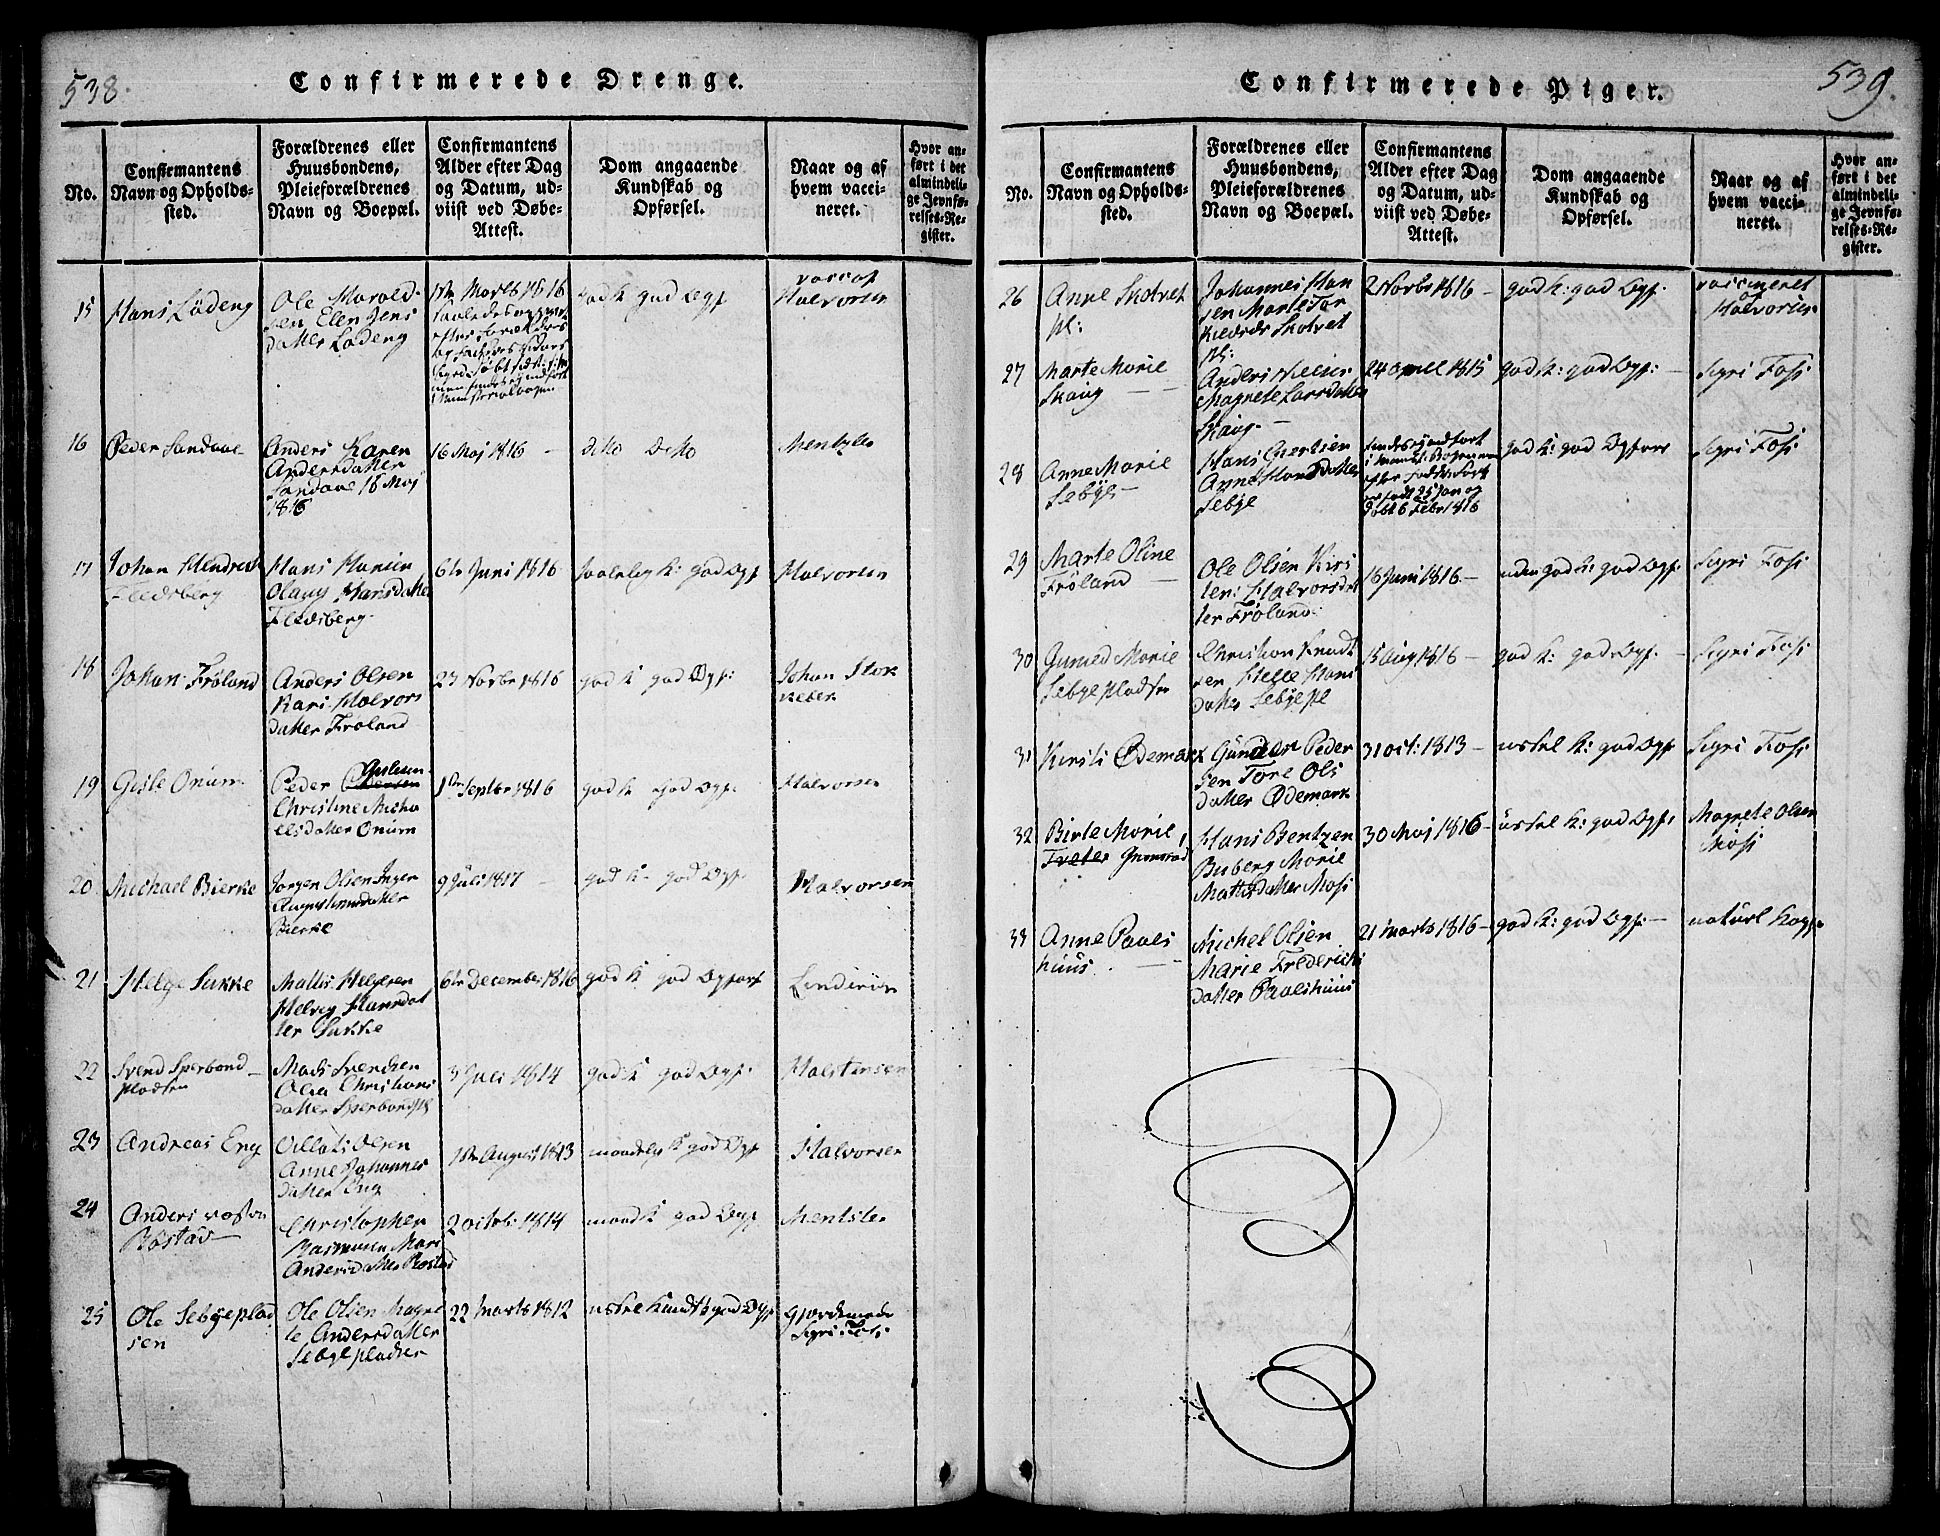 538.
Confirmerede Drenge.
No.
Confirmantens
Navn og Opholds-
sted.
Forældrenes eller
Huusbondens,
Pleieforældrenes
Navn og Boepæl.
Confirmantens
Alder efter Dag
og Datum, ud-
viist ved Døbe-
Attest.
Dom angaaende
Kundskab og
Opførsel.
Naar og af
hvem vacci-
neret.
Hvor an-
ført i det
almindeli-
ge Jevnfø-
relses-Re-
gister.
15
Hans Lödeng
Ole Harald-
sen Ellen Jens
datter Lödeng
1ste Marts 1816
god K god Opf
vacc af
Halvorsen
16
Peder Sandaae
Anders Karen
Andersdatter
Sandaae 16 Maj
1816
16 Maj 1816 -
dito dito
Mentzler
17
Johan Hendrich
Fledsberg
Hans Hansen
Olaug Hansdatter
Fledsberg.
6te Juni 1816
K: god Opf
Halvorsen
18
Johan Fröland
Anders Olsen
Kari Halvors
datter Fröland
23 Novbr 1816
god K god Opf:
Johan Stor
19
Gisle Onum
Peder Gislesen
Christine Micha
elsdatter Onum
1ste Septbr 1816
god K god Opf.
Halvorsen
20
Michael Bierke
Jørgen Olsen Inger
Augustinusdatter
Bierke
9 Juli 1817 -
god K- god Opf.
Halvorsen
21
Helge Sukke
Mattis Helgesen
Helvig Hansdat
ter Sukke
6te December 1816
god K god Opförs
22
Svend Sperbond
pladsen
Mads Svendsen
Olea Christians
datter Sperbondpl
3 Juli 1814
god K god Opf.
Halstensen
23
Andreas Eng
Anne Johannes
datter Eng
1ste August 1813
maadelig K god Opf
Halvorsen
24
Anders
Böstad
Christopher
Rasmusen Mari
Andersdatter Böstad
2 octbr: 1814
maad K god Opf
Mentzler
25
Ole Sebyeplad
sen
Ole Olsen Magne
te Andersdatter
Sebyepladsen
22 Marts 1812
god Opf
Gjordemode
Sigri Fosz
539.
Confirmerede Piger.
No.
Confirmantens
Navn og Opholds-
sted.
Forældrenes eller
Huusbondens,
Pleieforældrenes
Navn og Boepæl.
Confirmantens
Alder efter Dag
og Datum, ud-
viist ved Døbe-
Attest.
Dom angaaende
Kundskab og
Opførsel.
Naar og af
hvem vacci-
neret.
Hvor an-
ført i det
almindeli-
ge Jevnfø-
relses-Re-
gister.
26
Anne Skolvet
pl:
Johannes Han
sen Marte Tor
Skolvet
pl:
2 Novbr 1816 -
god K: god Opf.
vaccineret
af
Halvorsen
27
Marte Marie
Skaug -
Anders Nielsen
Magnete Larsdatter
Skaug -
24 April 1815
god K: god Opf: -
Sigri Fosz
28
Anne Marie
Sebye -
Hans
Anne Hansdatter
Sebye
födt 25 Jan og
Döbt 6 Febr 1816
god K: god Opförs
Sigri Fosz
29
Marte Oline
Fröland -
Ole Olsen Kirs
ten: Halvorsdat
ter Fröland:
16 Juni 1816. -
god K: god Opf.
Sigri Fosz
30
Gunild Marie
Sebye pladsen
Christian Knudt
sen Helle Hans
datter Sebye pl
15 Aug 1816 -
god K: god Opf. -
Sigri Fosz
31
Kirsti Ødemark
Gunder Peder
sen Tore Ols
datter Ødemark
31 oct: 1813 -
ustel K: god Opf
Sigri Fosz
32
Birte Marie
Hans Bentzen
Buberg Marie
Mattisdatter Mosz
30 Maj 1816 -
ustel K: god Opf:
Magnete Olsen
Mosz
33
Anne Pauls
huus. -
Michel Olsen
Marie Frederichs
datter Paulshuus
21 Marts 1816 -
god K: god Opf: -
naturl Kopp.